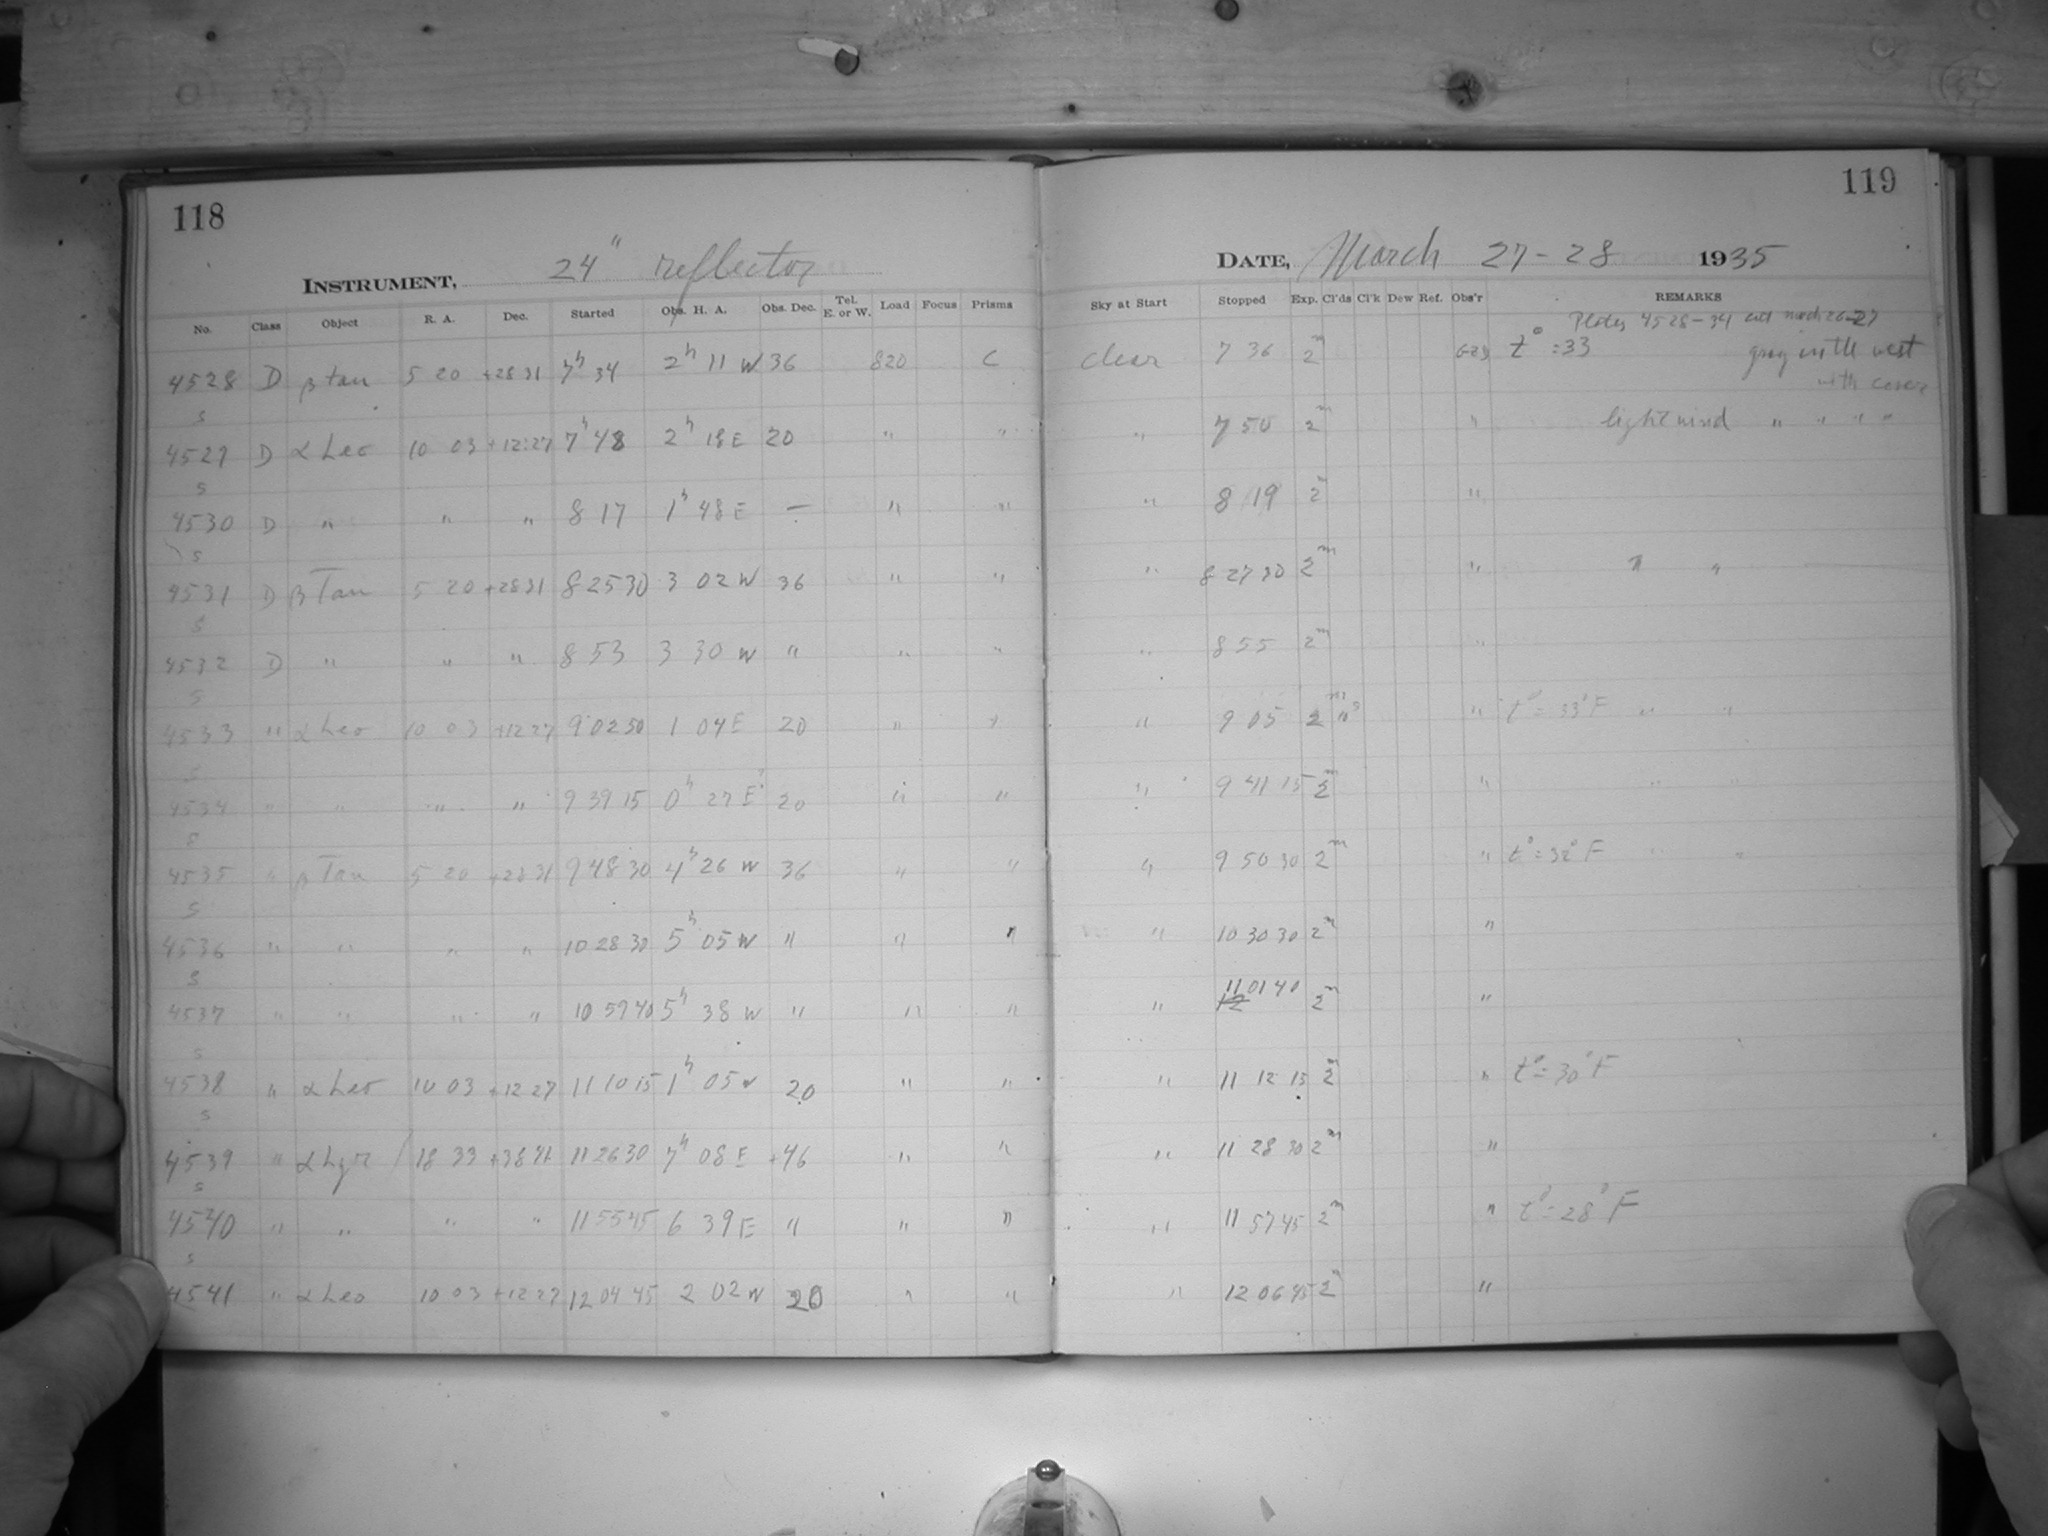 118
INSTRUMENT, 24" reflector
No. Class Object R. A. Dec. Started Obs. H. A. Obs. Dec. Tel. E. or W. Load Focus Prisms
4528 D β tau 5 20 +28 31 7h 34 2h 11 W 36 820 C
s
4529 D α Leo 10 03 +12:27 7h 48 2h 18 E 20 " "
s
4530 D " " " 8 17 1h 48 E — " "
s
4531 D β Tau 5 20 +28 31 8 25 30 3 02 W 36 " "
s
4532 D " " " 8 53 3 30 W " " "
s
4533 " α Leo 10 03 +12 27 9 02 50 1 04 E 20 " "
s
4534 " " " " 9 39 15 0h 27 E 20 " "
s
4535 " β Tau 5 20 +28 31 9 48 30 4h 26 W 36 " "
s
4536 " " " " 10 28 30 5h 05 W " " "
s
4537 " " " " 10 59 40 5h 38 W " " "
s
4538 " α Leo 10 03 +12 27 11 10 15 1h 05 W 20 " "
s
4539 " α Lyr 18 33 +38 41 11 26 30 7h 08 E +46 " "
s
4540 " " " " 11 55 45 6 39 E " " "
s
4541 " α Leo 10 03 +12 27 12 04 45 2 02 W 20 " "
119
DATE, March 27-28 1935
Sky at Start Stopped Exp. Cl'ds Cl'k Dew Ref. Obs'r REMARKS
Plates 4528-34 March 26-27
clear 7 36 2m t° = 33 in the west
with
" 7 50 2m " light wind " " " "
" 8 19 2m "
" 8 27 30 2m " " "
" 8 55 2m "
" 9 05 2m 10s " t° = 33° F " "
" 9 41 15 2m " " "
" 9 50 30 2m " t° = 32° F " "
" 10 30 30 2m "
" 11 01 40 2m "
" 11 12 15 2m " t° = 30° F
" 11 28 30 2m "
" 11 57 45 2m " t° = 28° F
" 12 06 45 2m "